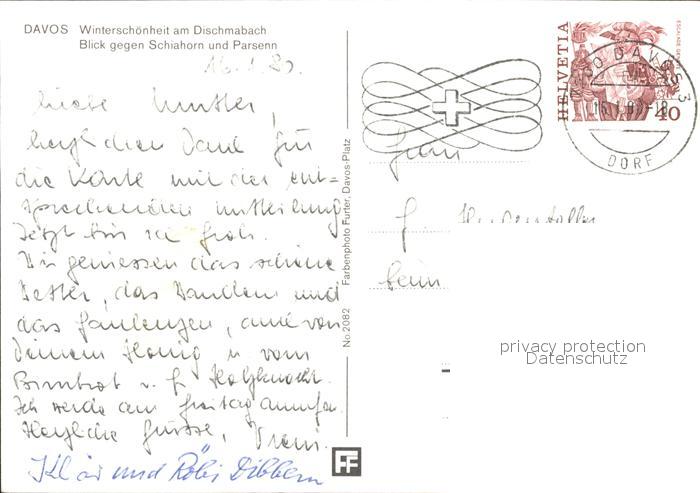 DAVOS Winterschönheit am Dischmabach
Blick gegen Schiahorn und Parsenn
16.1.8
Liebe Mutter,
herzlichen Dank für
die Karte mit der ent=
sprechenden Mitteilung
Jetzt bin ich froh.
Wir geniessen das schöne
Wetter, das Wandern und
das Faulenzen, auch von
Deinem Honig u vom
Birnbrot v.
Ich werde am Freitag anrufen.
Herzliche Grüsse, Vreni.
Klär und Röbi Dibbern
No. 2082 Farbenphoto Furter, Davos-Platz
FF
HELVETIA
40
DAVOS 3
DORF
Frau
beim
privacy protection
Datenschutz